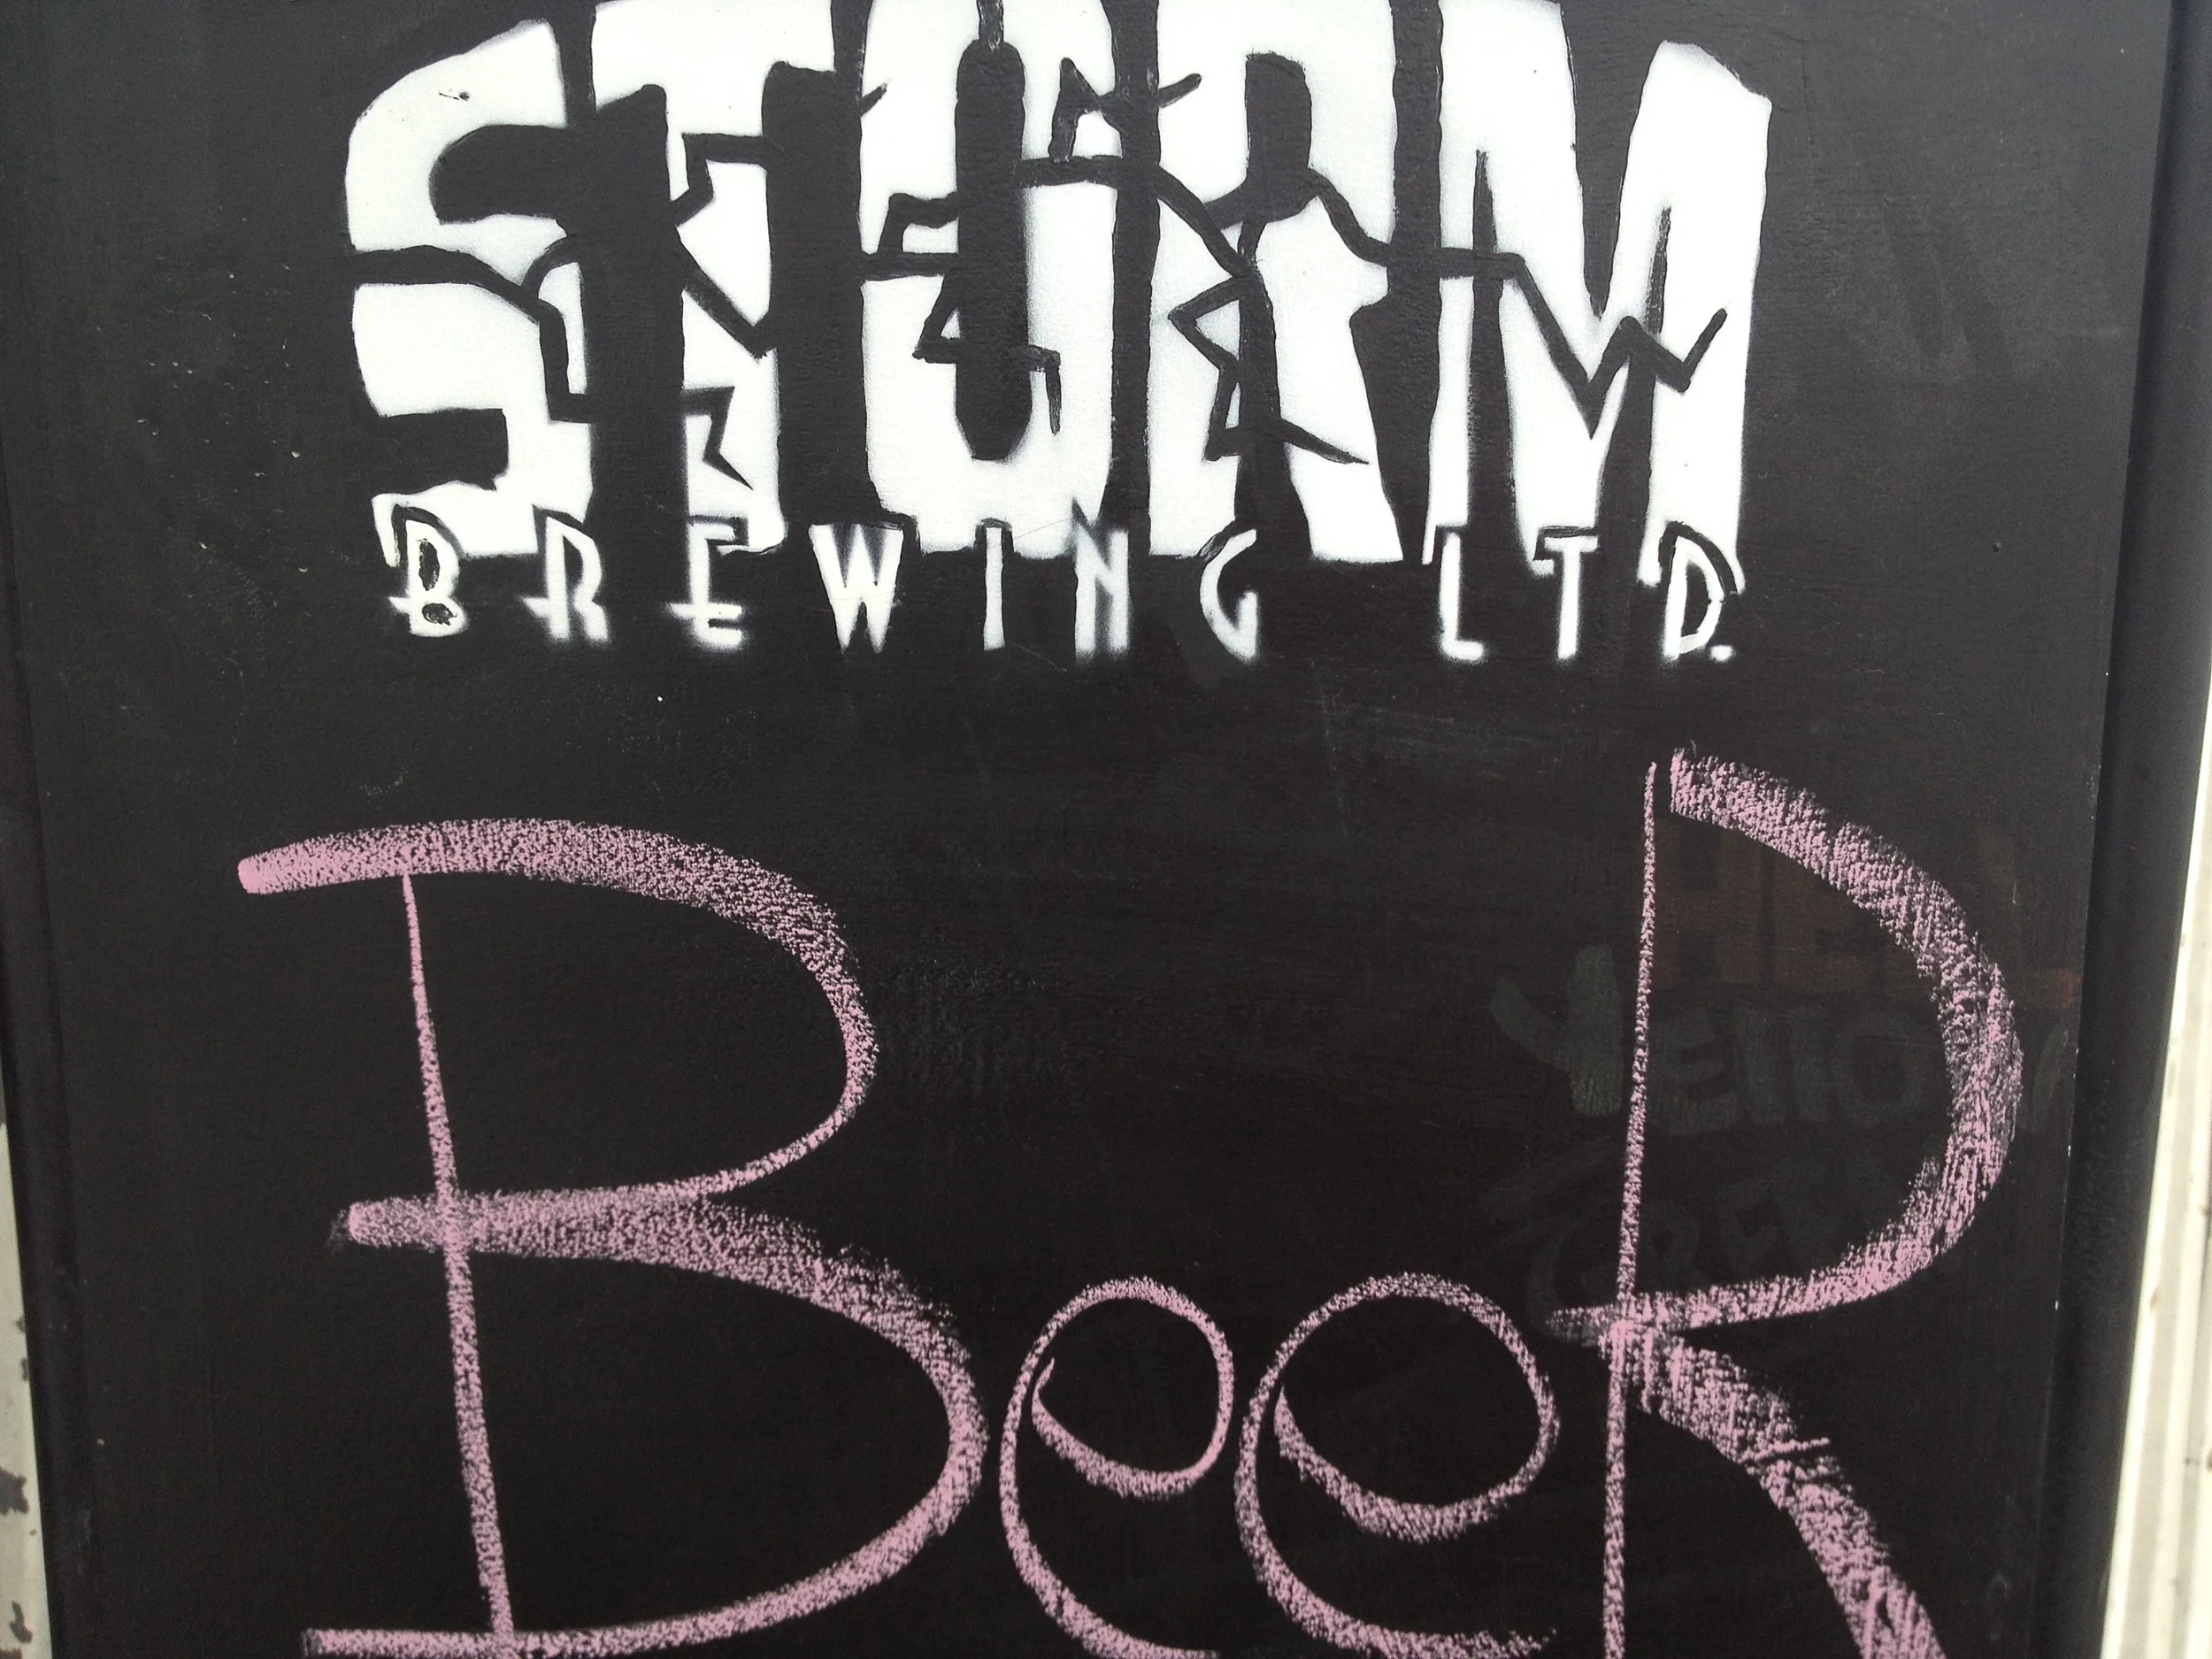 STORM
BREWING LTD.
BeeR